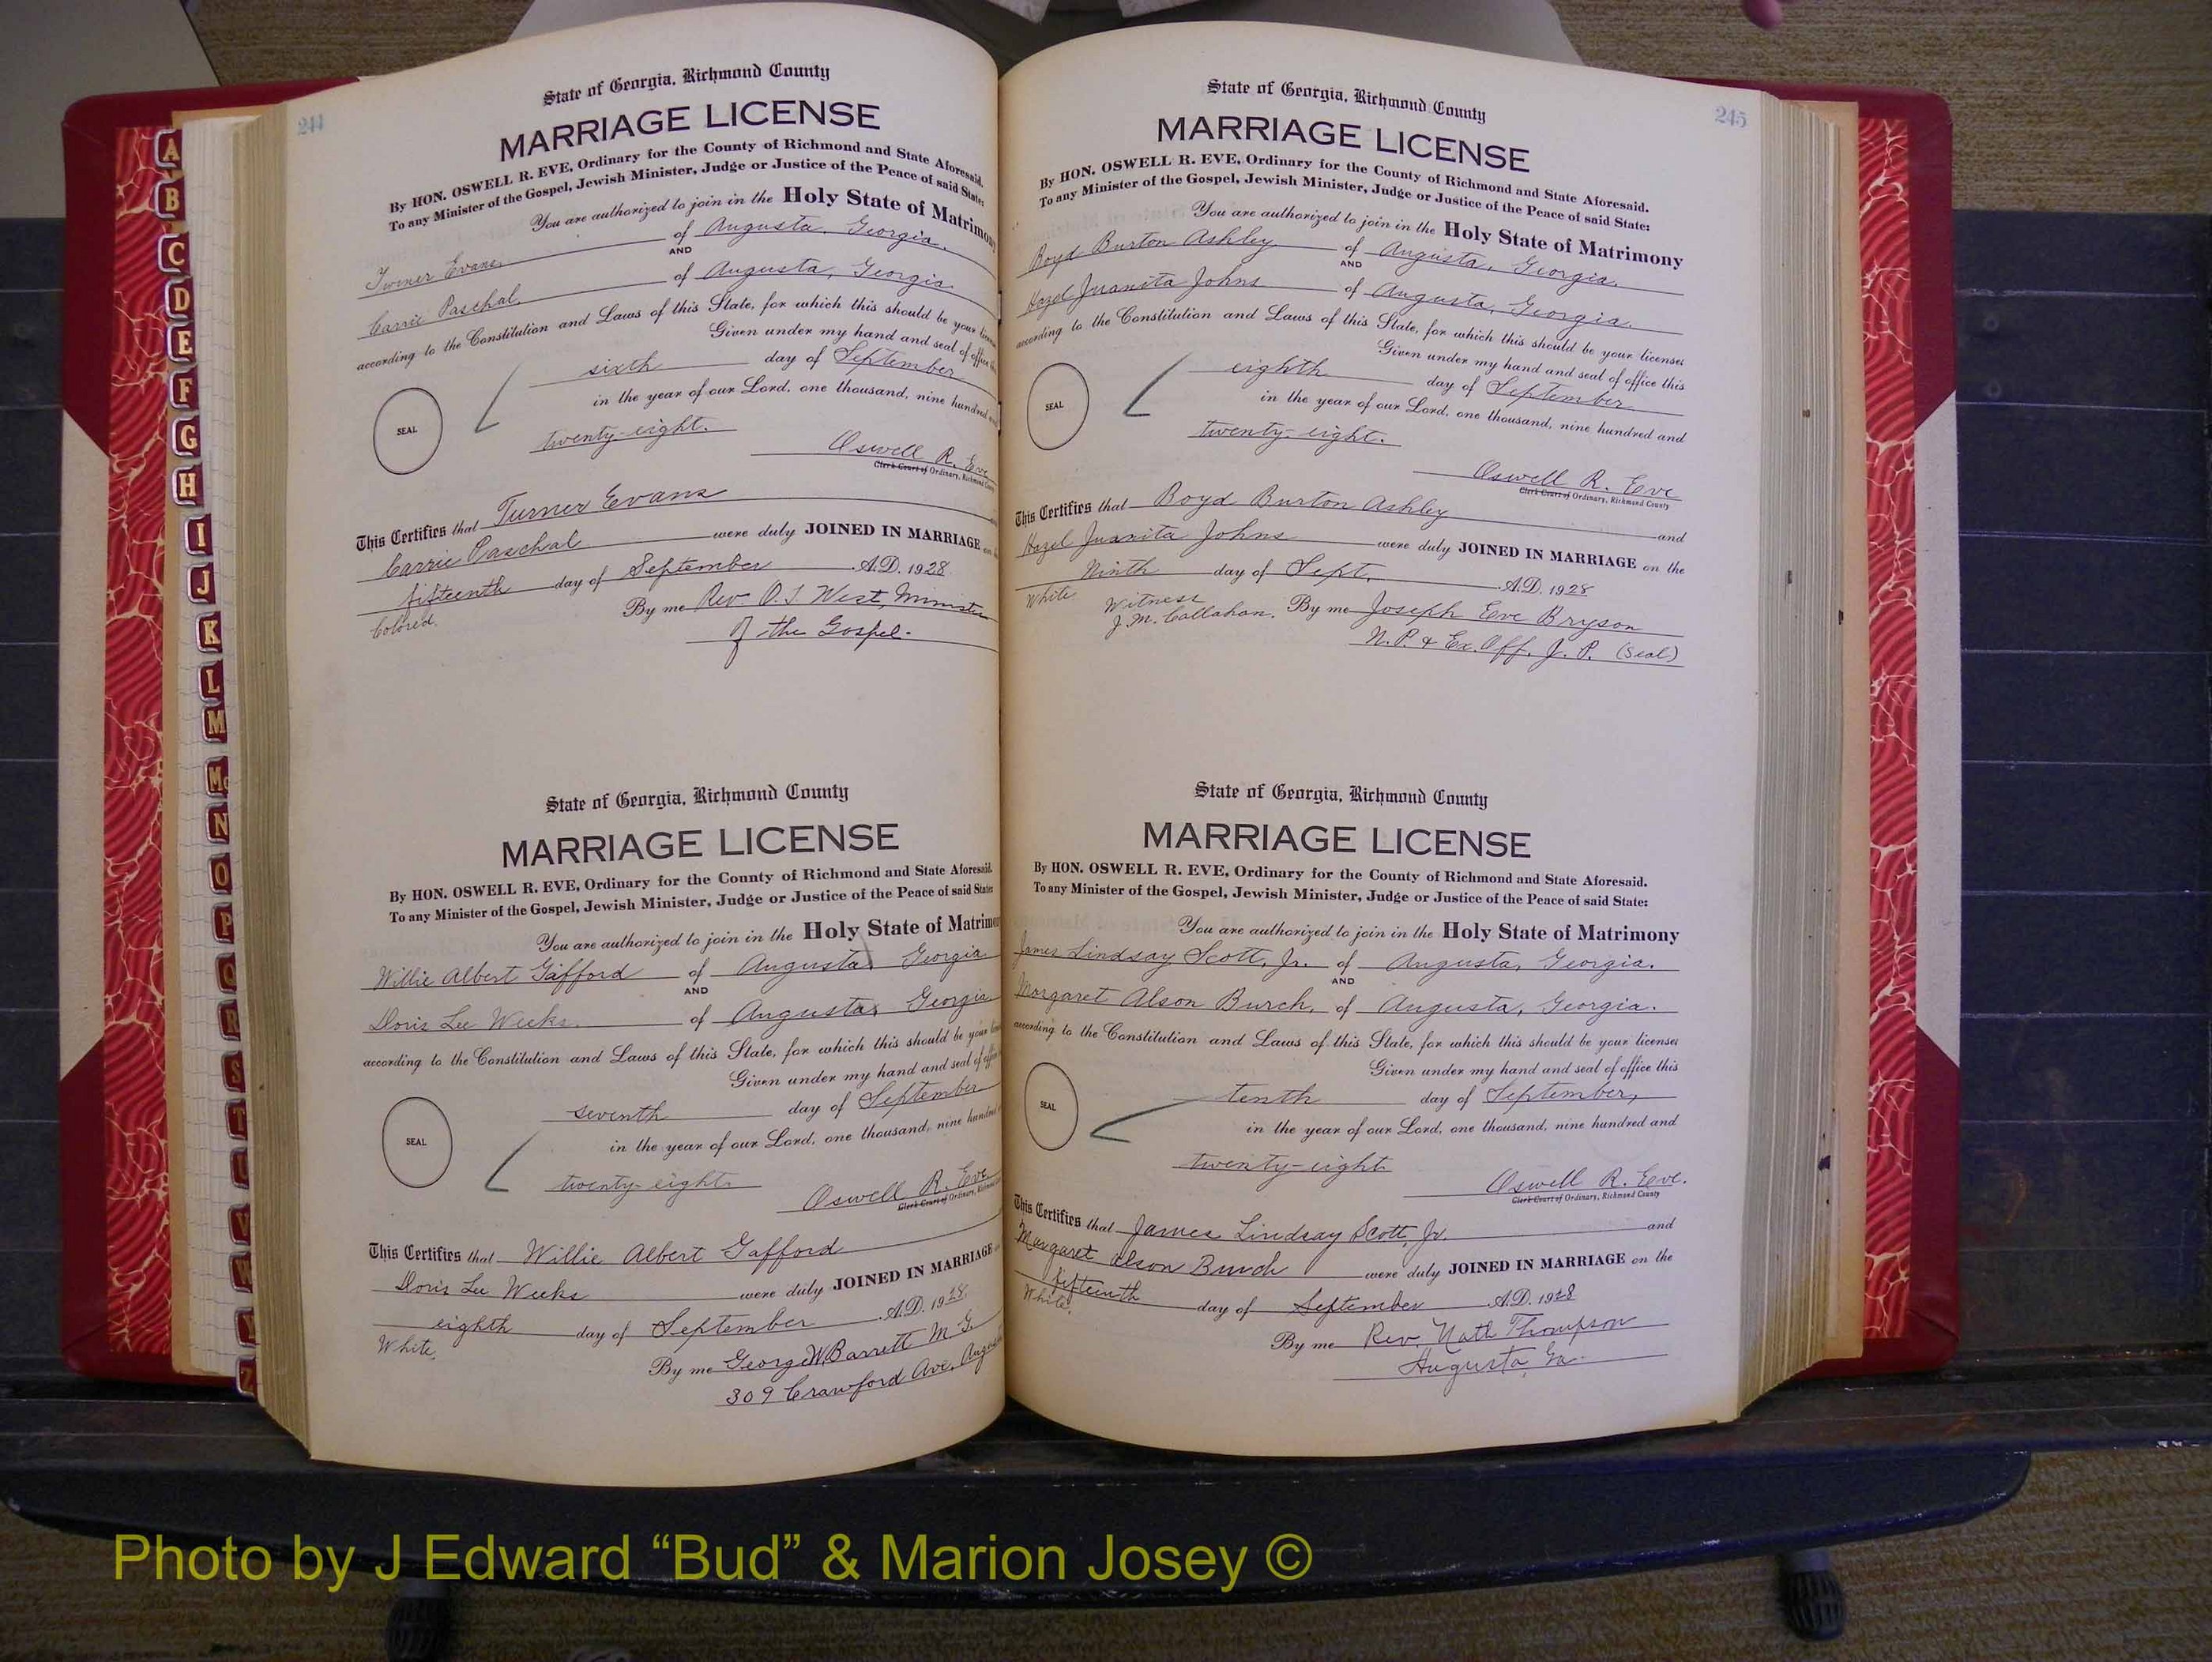 244
State of Georgia, Richmond County
MARRIAGE LICENSE
By HON. OSWELL R. EVE, Ordinary for the County of Richmond and State Aforesaid.
To any Minister of the Gospel, Jewish Minister, Judge or Justice of the Peace of said State:
You are authorized to join in the Holy State of Matrimony
Turner Evans of Augusta, Georgia.
AND
Carrie Paschal of Augusta, Georgia
according to the Constitution and Laws of this State, for which this should be your license
Given under my hand and seal of office
sixth day of September
SEAL
in the year of our Lord, one thousand, nine hundred
twenty-eight.
Oswell R. Eve
Clerk Court of Ordinary, Richmond County
This Certifies that Turner Evans
Carrie Paschal were duly JOINED IN MARRIAGE on
fifteenth day of September A.D. 1928
Colored.
By me Rev. O. J. West, Minister
of the Gospel.
State of Georgia, Richmond County
MARRIAGE LICENSE
By HON. OSWELL R. EVE, Ordinary for the County of Richmond and State Aforesaid.
To any Minister of the Gospel, Jewish Minister, Judge or Justice of the Peace of said State:
You are authorized to join in the Holy State of Matrimo
Willie Albert Gafford of Augusta, Georgia
AND
Doris Lee Weeks. of Augusta, Georgia
according to the Constitution and Laws of this State, for which this should be your
Given under my hand and seal of office
seventh day of September
SEAL
in the year of our Lord, one thousand, nine hundred
twenty-eight.
Oswell R. Eve
Clerk Court of Ordinary, Richmond
This Certifies that Willie Albert Gafford
Doris Lee Weeks were duly JOINED IN MARRIAGE
eighth day of September A.D. 1928
White.
By me George W. Barrett M G
309 Crawford Ave. Augusta
245
State of Georgia, Richmond County
MARRIAGE LICENSE
By HON. OSWELL R. EVE, Ordinary for the County of Richmond and State Aforesaid.
To any Minister of the Gospel, Jewish Minister, Judge or Justice of the Peace of said State:
You are authorized to join in the Holy State of Matrimony
Boyd Burton Ashley of Augusta, Georgia.
AND
Hazel Juanita Johns of Augusta, Georgia.
according to the Constitution and Laws of this State, for which this should be your license:
Given under my hand and seal of office this
eighth day of September
SEAL
in the year of our Lord, one thousand, nine hundred and
twenty-eight.
Oswell R. Eve
Clerk Court of Ordinary, Richmond County
This Certifies that Boyd Burton Ashley and
Hazel Juanita Johns were duly JOINED IN MARRIAGE on the
Ninth day of Sept. A.D. 1928
White
Witness
J. M. Callahan. By me Joseph Eve Bryson
N. P. & Ex. Off. J. P. (Seal)
State of Georgia, Richmond County
MARRIAGE LICENSE
By HON. OSWELL R. EVE, Ordinary for the County of Richmond and State Aforesaid.
To any Minister of the Gospel, Jewish Minister, Judge or Justice of the Peace of said State:
You are authorized to join in the Holy State of Matrimony
James Lindsay Scott, Jr. of Augusta, Georgia.
AND
Margaret Alson Burch, of Augusta, Georgia.
according to the Constitution and Laws of this State, for which this should be your license:
Given under my hand and seal of office this
tenth day of September,
SEAL
in the year of our Lord, one thousand, nine hundred and
twenty-eight
Oswell R. Eve.
Clerk Court of Ordinary, Richmond County
This Certifies that James Lindsay Scott, Jr. and
Margaret Alson Burch were duly JOINED IN MARRIAGE on the
fifteenth day of September A.D. 1928
White.
By me Rev. Nath Thompson
Augusta, Ga.
A
B
C
D
E
F
G
H
I
J
K
L
M
Mc
N
O
P
Q
R
S
T
U
V
W
Y
Z
Photo by J Edward “Bud” & Marion Josey ©